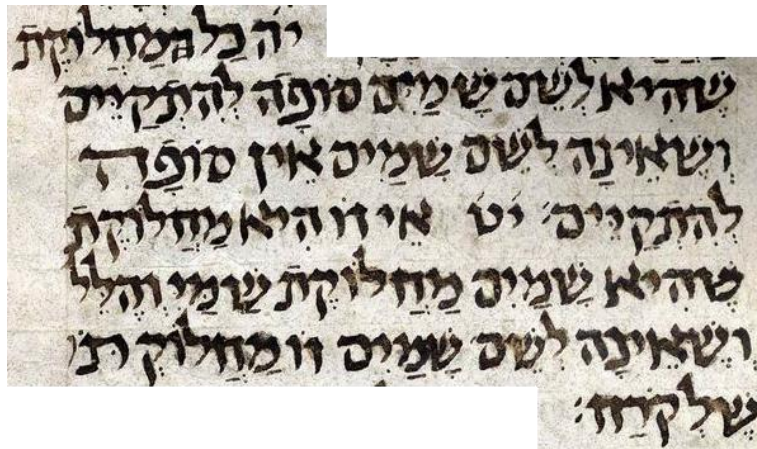 יׄחׄ כָּל מַחֲלוֹקֶת
שֶׁהִיא לְשֵׁם שָׁמַיִם סוֹפָהּ לְהִתְקַיֵּים
וְשֶׁאֵינָהּ לְשֵׁם שָׁמַיִם אֵין סוֹפָהּ
לְהִתְקַיֵּים׃ יׄטׄ אֵי זוֹ הִיא מַחֲלוֹקֶת
שֶׁהִיא שָׁמַיִם מַחֲלוֹקֶת שַׁמַּי וְהֶלֵּל
וְשֶׁאֵינָהּ לְשֵׁם שָׁמַיִם זוֹ מַחֲלוֹקֶת
שֶׁלְקֹרַח׃